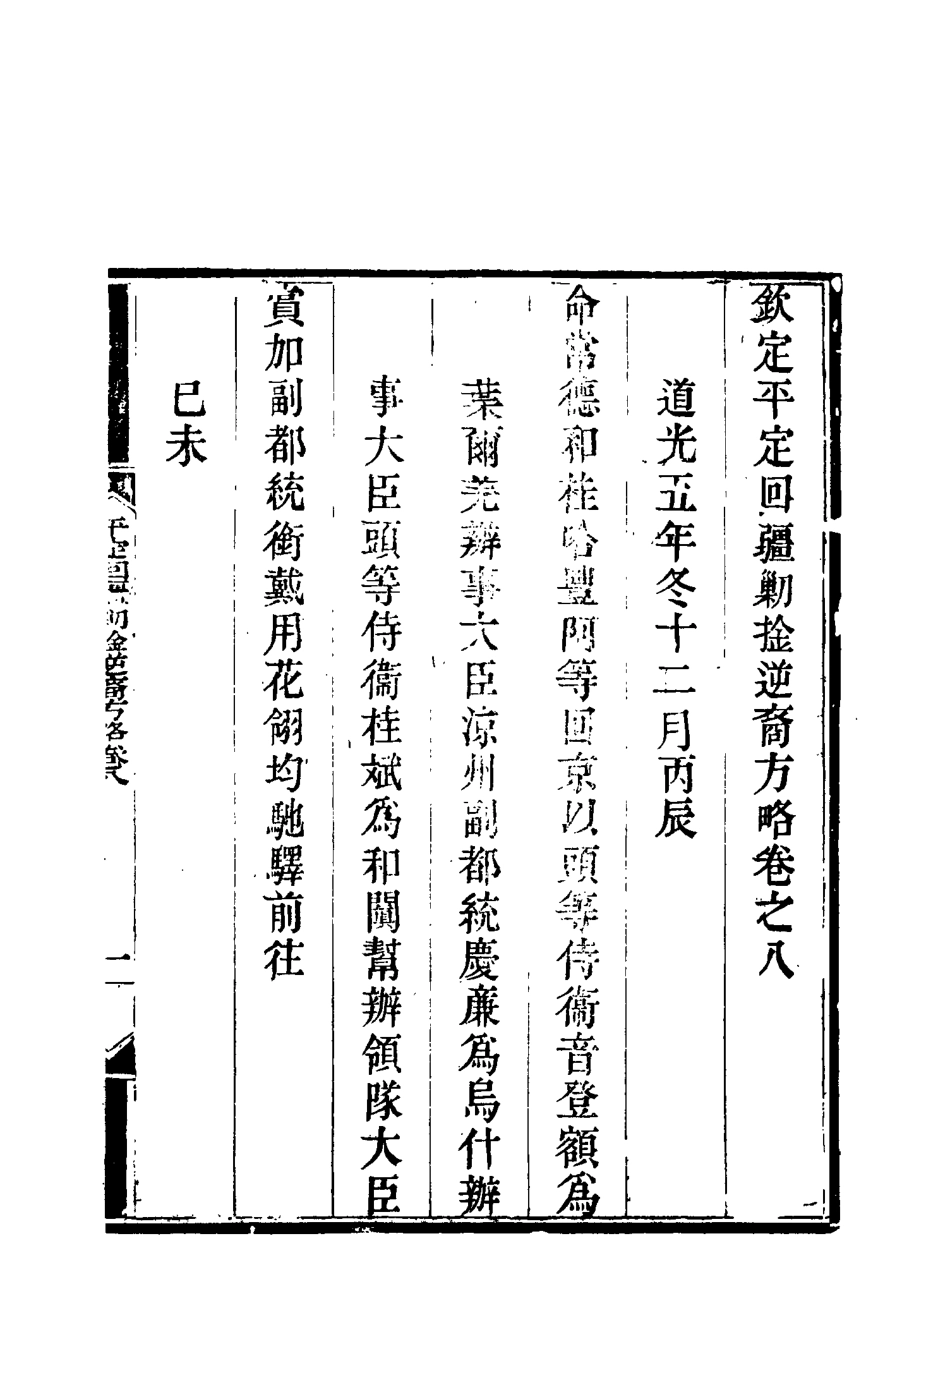 欽定平定回疆勦捦逆裔方略卷之八
道光五年冬十二月丙辰
命常德和桂哈豐阿等回京以頭等侍衞音登額爲
葉爾羌辦事大臣涼州副都統慶廉爲烏什辦
事大臣頭等侍衞桂斌爲和闐幫辦領隊大臣
賞加副都統銜戴用花翎均馳驛前往
己未
平定回疆勦捦逆裔方略卷八
一